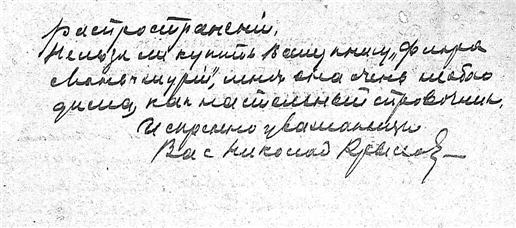 распространении.
Нельзя ли купить Вашу книгу „Флора
Маньчжурии", мне она очень необхо
дима, как настольный справочник.
Искренно уважающий
Вас Николай